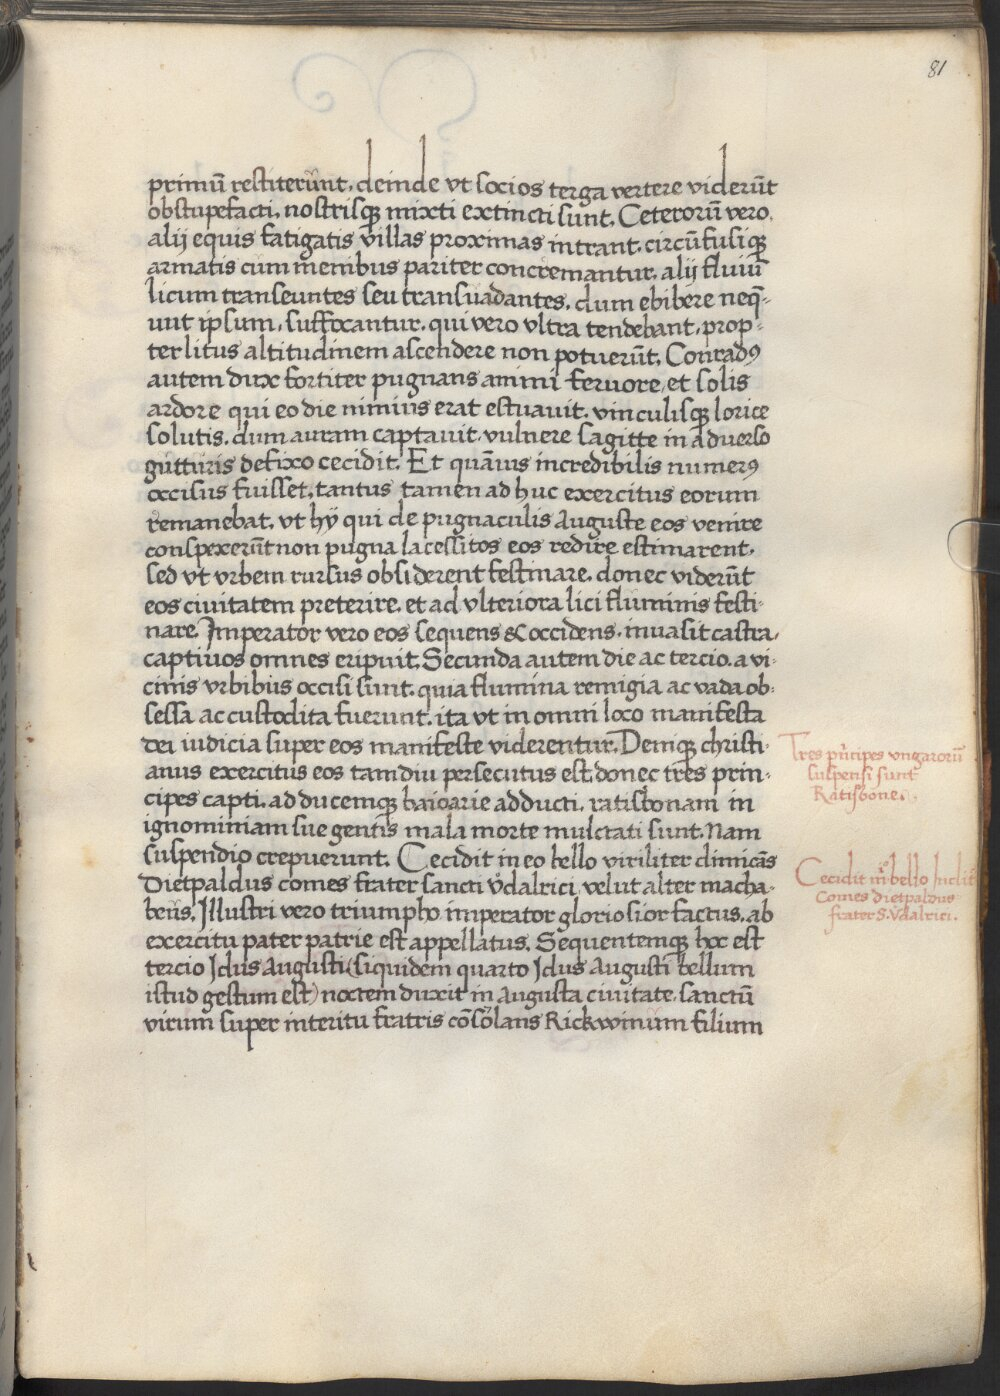 81
primū restiterūnt, deinde vt socios terga vertere viderūt
obstupefacti, nostrisqꝫ mixti extincti sunt. Ceterorū vero,
alij equis fatigatis villas proximas intrant, circūfusiqꝫ
armatis cum menibus pariter concremantur, alij fluuiū
licum transeuntes seu transuadantes, dum ebibere neq̄-
uut ipsum, suffocantur, qui vero vltra tendebant, prop-
ter litus altitudinem ascendere non potuerūt. Conradꝰ
autem dux fortiter pugnans animi feruore, et solis
ardore qui eo die nimius erat estuauit, vinculisqꝫ lorice
solutis, dum auram captauit, vulnere sagitte in aduerso
gutturis defixo cecidit. Et quāuis incredibilis numerꝰ
occisus fuisset, tantus tamen adhuc exercitus eorum
remanebat, vt hÿ qui de pugnaculis Auguste eos venire
conspexerūt non pugna lacessitos eos redire estimarent,
sed vt vrbem rursus obsiderent festinare, donec viderūt
eos ciuitatem preterire, et ad vlteriora lici fluminis festi-
nare. Imperator vero eos sequens & occidens, inuasit castra,
captiuos omnes eripuit. Secunda autem die ac tercio, a vi-
cinis vrbibus occisi sunt, quia flumina remigia ac vada ob-
sessa ac custodita fuerunt, ita vt in omni loco manifesta
dei iudicia super eos manifeste viderentur. Demqꝫ christi-
anus exercitus eos tamdiu persecutus est, donec tres prin-
cipes capti, ad ducemqꝫ baioarie adducti, ratisbonam in
ignominiam sue gentis mala morte mulctati sunt. Nam
suspendio crepuerunt. Cecidit in eo bello viriliter dimicās
Dietpaldus comes frater sancti vͦdalrici velut alter macha-
beus. Illustri vero triumpho imperator gloriosior factus, ab
exercitu pater patrie est appellatus. Sequentemqꝫ hoc est
tercio Idus Augusti (siquidem quarto Idus Augusti bellum
istud gestum est) noctem duxit in Augusta ciuitate, sanctū
virum super interitu fratris cōsolans Rickwinum filium
Tres prīcipes vngarorū
suspensi sunt
Ratisbone.
Cecidit in bello Inclit
Comes dietpaldus
frater S. vͦdalrici.